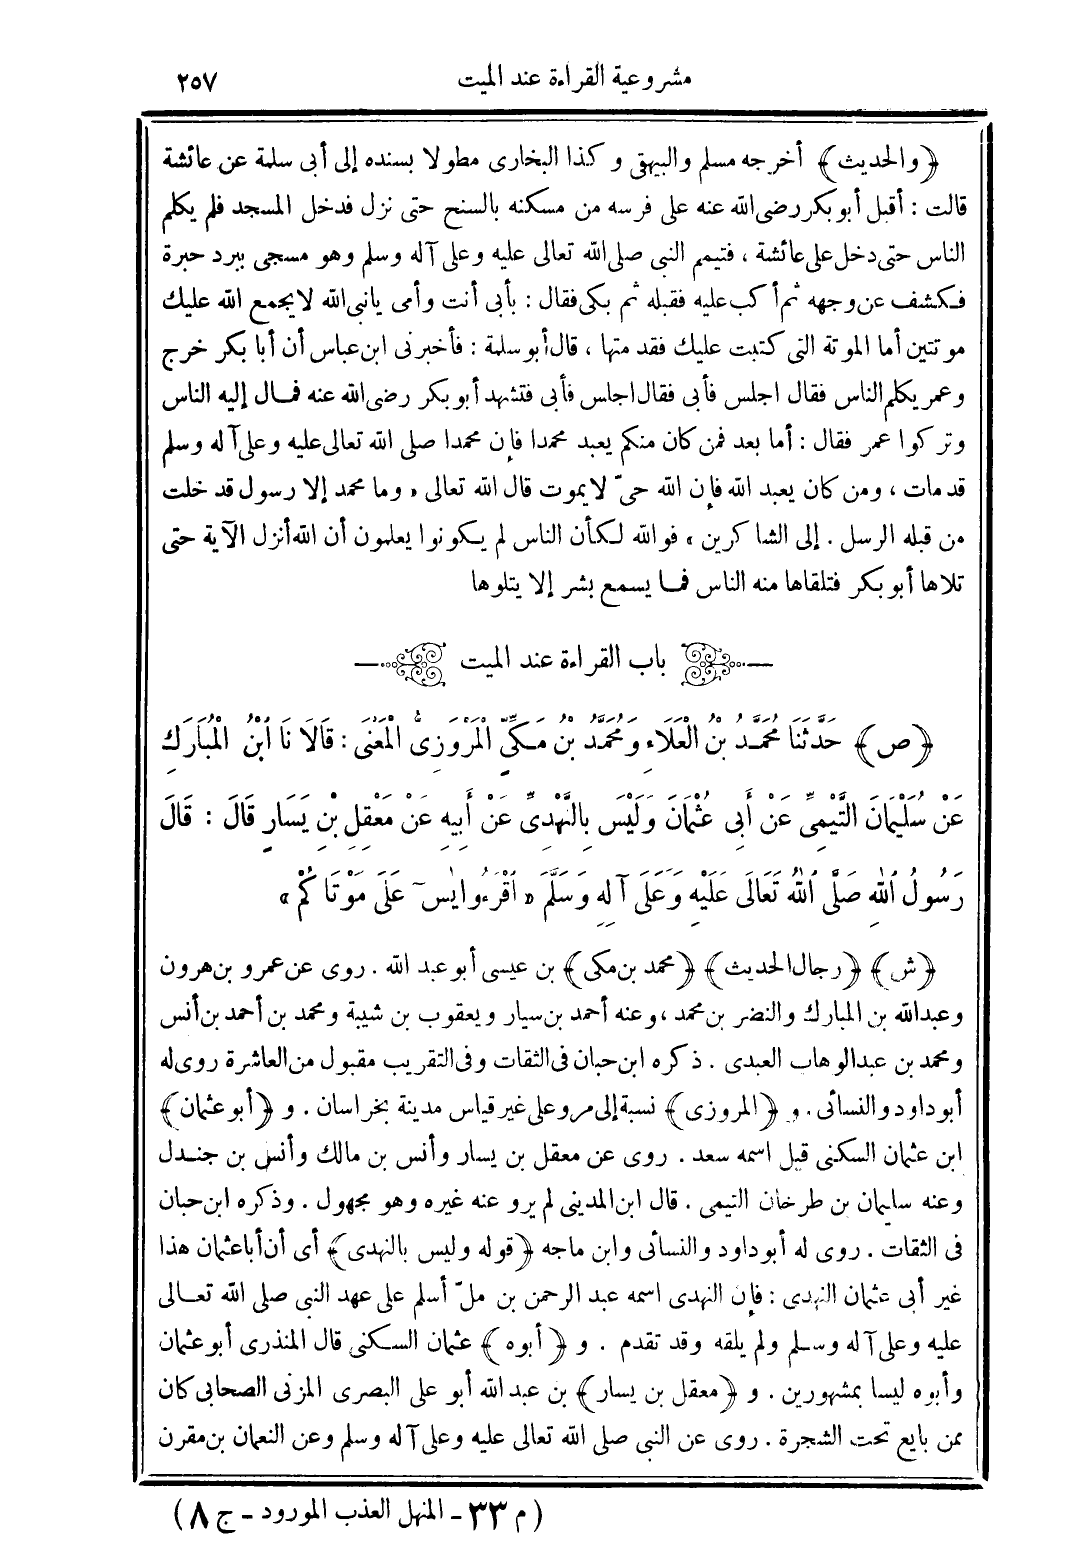 مشروعية القراءة عند الميت ٢٥٧
﴿والحديث﴾ أخرجه مسلم والبيهقى وكذا البخارى مطولا بسنده إلى أبى سلمة عن عائشة
قالت : أقبل أبو بكر رضى الله عنه على فرسه من مسكنه بالسنح حتى نزل فدخل المسجد فلم يكلم
الناس حتى دخل على عائشة ، فتيمم النبى صلى الله تعالى عليه وعلى آله وسلم وهو مسجى ببرد حبرة
فكشف عن وجهه ثم أكب عليه فقبله ثم بكى فقال : بأبى أنت وأمى يانبى الله لايجمع الله عليك
موتتين أما الموتة التى كتبت عليك فقد متها ، قال أبو سلمة : فأخبرنى ابن عباس أن أبا بكر خرج
وعمر يكلم الناس فقال اجلس فأبى فقال اجلس فأبى فتشهد أبو بكر رضى الله عنه فمال إليه الناس
وتركوا عمر فقال : أما بعد فمن كان منكم يعبد محمدا فإن محمدا صلى الله تعالى عليه وعلى آله وسلم
قد مات ، ومن كان يعبد الله فإن الله حىّ لايموت قال الله تعالى « وما محمد إلا رسول قد خلت
من قبله الرسل . إلى الشاكرين » فوالله لكأن الناس لم يكونوا يعلمون أن الله أنزل الآية حتى
تلاها أبو بكر فتلقاها منه الناس فما يسمع بشر إلا يتلوها
باب القراءة عند الميت
﴿ص﴾ حَدَّثَنَا مُحَمَّدُ بْنُ الْعَلَاءِ وَمُحَمَّدُ بْنُ مَكِّيٍّ الْمَرْوَزِىُّ الْمَعْنَى : قَالَا نَا ابْنُ الْمُبَارَكِ
عَنْ سُلَيْمَانَ التَّيْمِىِّ عَنْ أَبِى عُثْمَانَ وَلَيْسَ بِالنَّهْدِىِّ عَنْ أَبِيهِ عَنْ مَعْقِلِ بْنِ يَسَارٍ قَالَ : قَالَ
رَسُولُ اللهِ صَلَّى اللهُ تَعَالَى عَلَيْهِ وَعَلَى آلِهِ وَسَلَّمَ « اقْرَءُوا يٰسٓ عَلَى مَوْتَاكُمْ »
﴿ش﴾ ﴿رجال الحديث﴾ ﴿محمد بن مكى﴾ بن عيسى أبو عبد الله . روى عن عمرو بن هرون
وعبد الله بن المبارك والنضر بن محمد ، وعنه أحمد بن سيار ويعقوب بن شيبة ومحمد بن أحمد بن أنس
ومحمد بن عبد الوهاب العبدى . ذكره ابن حبان فى الثقات وفى التقريب مقبول من العاشرة روى له
أبو داود والنسائى . و ﴿المروزى﴾ نسبة إلى مرو على غير قياس مدينة بخراسان . و ﴿أبو عثمان﴾
ابن عثمان السكنى قيل اسمه سعد . روى عن معقل بن يسار وأنس بن مالك وأنس بن جندل
وعنه سليمان بن طرخان التيمى . قال ابن المدينى لم يرو عنه غيره وهو مجهول . وذكره ابن حبان
فى الثقات . روى له أبو داود والنسائى وابن ماجه ﴿قوله وليس بالنهدى﴾ أى أن أبا عثمان هذا
غير أبى عثمان النهدى : فإن النهدى اسمه عبد الرحمن بن ملّ أسلم على عهد النبى صلى الله تعالى
عليه وعلى آله وسلم ولم يلقه وقد تقدم . و ﴿أبوه﴾ عثمان السكنى قال المنذرى أبو عثمان
وأبوه ليسا بمشهورين . و ﴿معقل بن يسار﴾ بن عبد الله أبو على البصرى المزنى الصحابى كان
ممن بايع تحت الشجرة . روى عن النبى صلى الله تعالى عليه وعلى آله وسلم وعن النعمان بن مقرن
(م ٣٣ - المنهل العذب المورود - ج ٨)